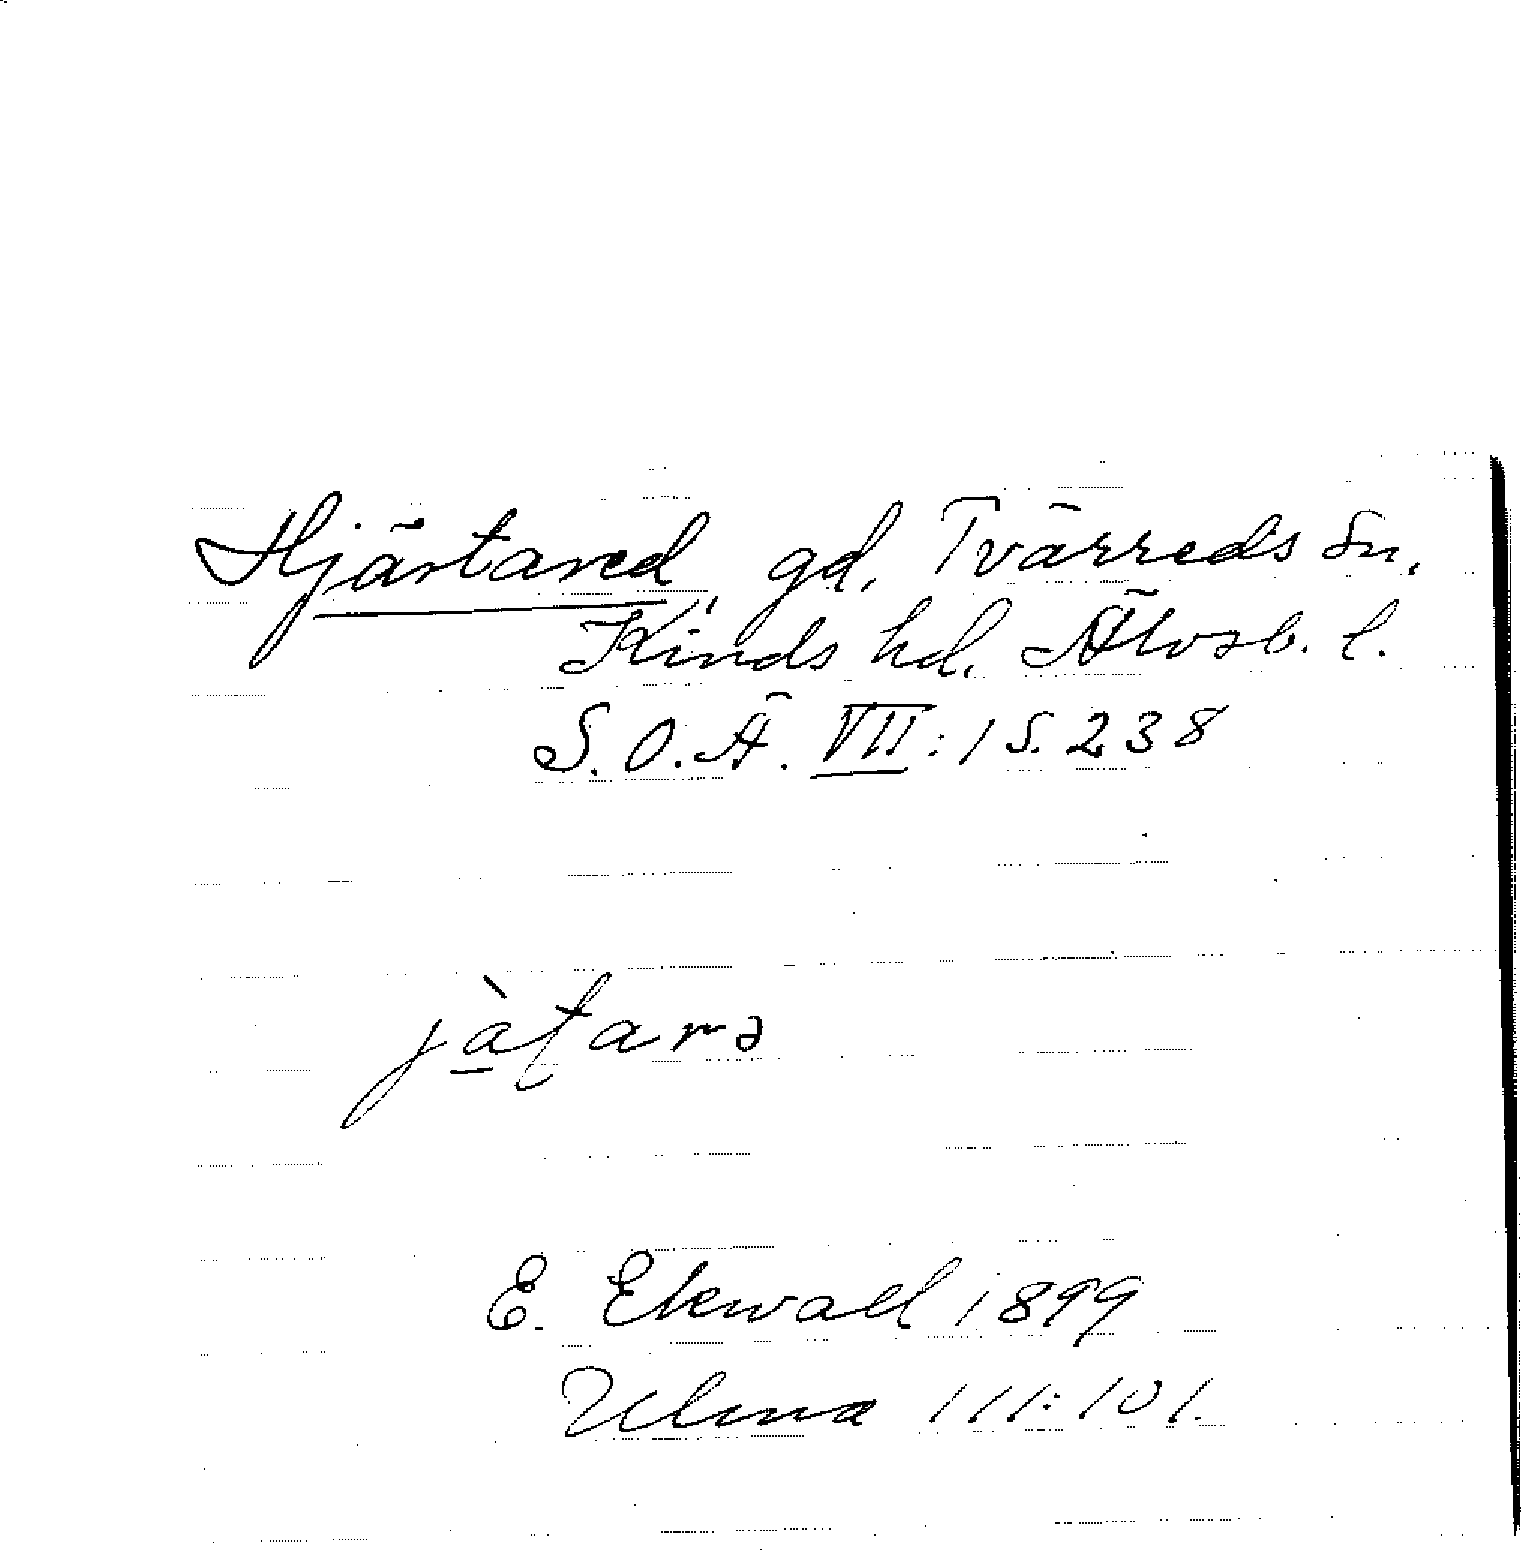 Hjärtared, gd, Tvärreds sn,
Kinds hd. Älvsb. l.
S.O.Ä. VII:1 S. 238
jàƫarə
E. Ekwall 1899
Ulma 111:101.